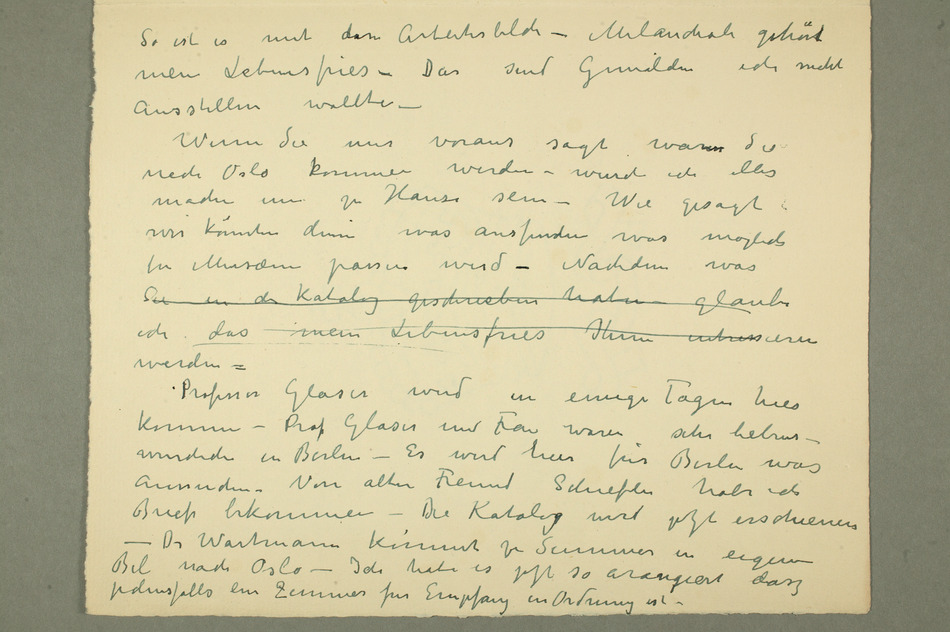 So ist es mit dem Arbeiterbilde – Melancholi gehört
mein Lebensfries – Das sind Gemälden ich nicht
Ausstellen wollte –
Wenn Sie mir voraus sagt wann Sie
nach Oslo kommen werden – würd ich alles
machen um zu Hause sein – Wie gesagt
wir könnten dann was ausfinden was moglich
für Museum passen werd – Nachdem was
Sie in der Katalog geschrieben haben – glaube
ich das mein Lebensfries Ihnen intressieren
werden =
Professor Glaser werd in einige Tagen hier
kommen – Prof Glaser und Frau waren sehr liebens–
wurdich in Berlin – Er werd hier für Berlin was
Von alter Freund Schiefler habe ich
Brief bekommen – Die Katalog werd jetzt erschienen
– Dr Wartmann kommt zu Summer in eigen
Bil nach Oslo – Ich habe es jetzt so arangiert dasz
jedensfalls ein Zimmer für Empfang in Ordnung ist –